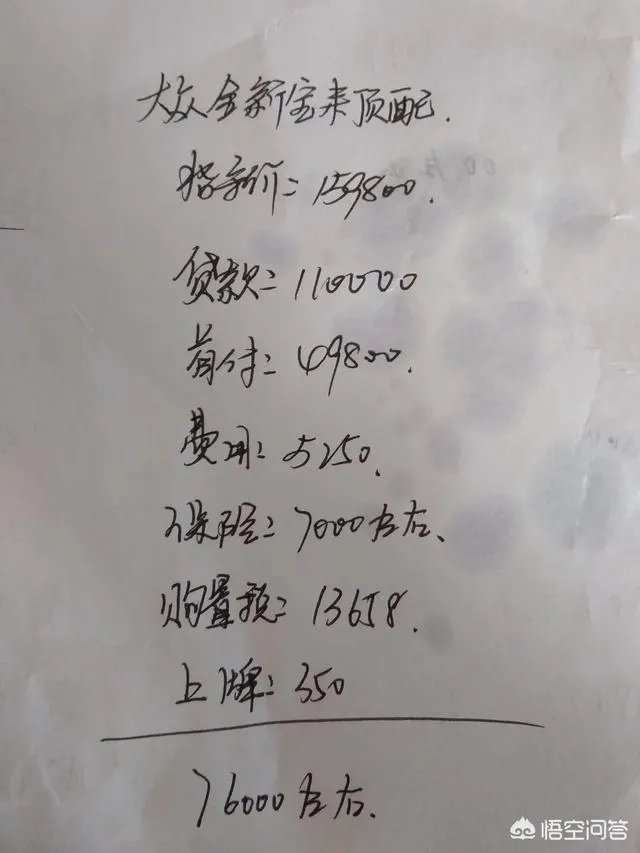 大众全新宝来顶配.
指导价：159800.
贷款：110000
首付：49800.
费用：5250.
保险：7000左右、
购置税：13658.
上牌：350
76000左右.
悟空问答